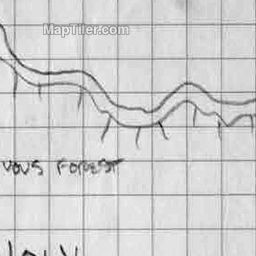 MapTiler.com
VOUS FOREST